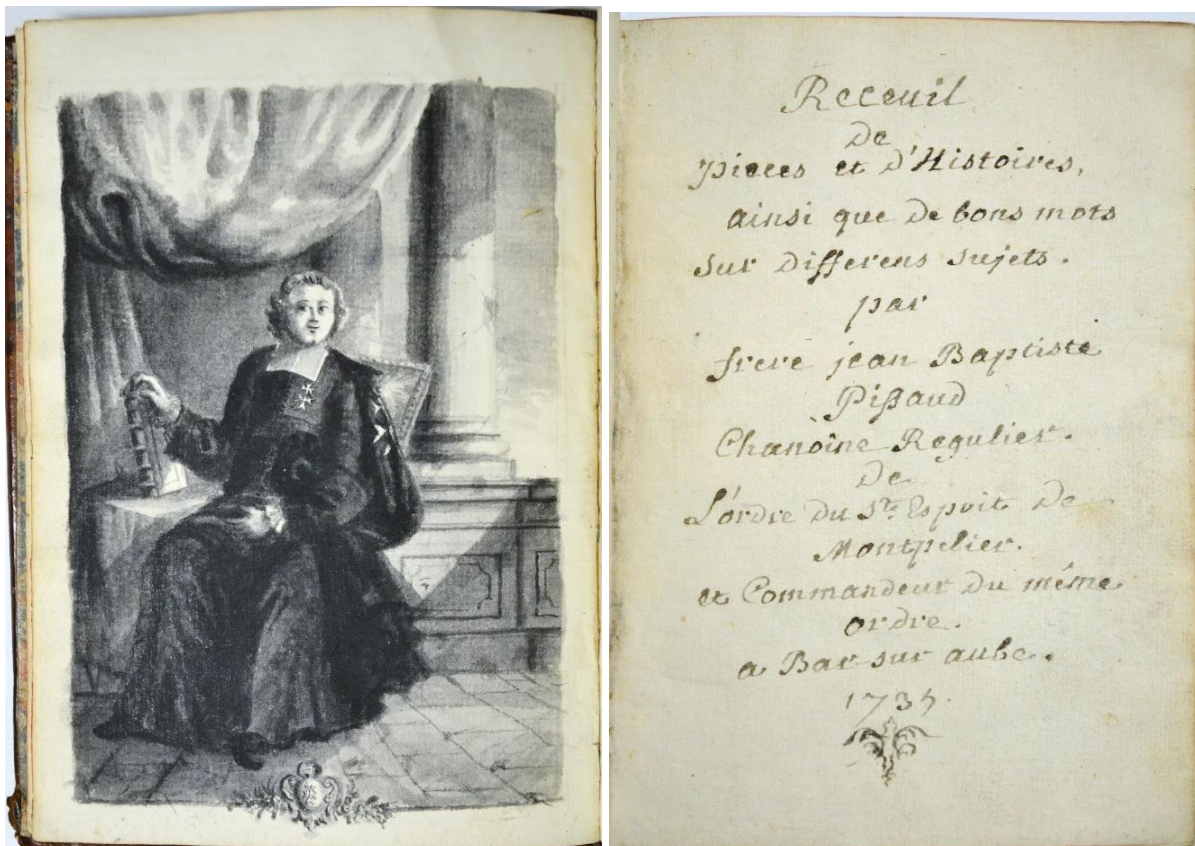 Receuil
de
pieces et d'Histoires,
ainsi que de bons mots
sur differens sujets.
par
frere jean Baptiste
Pissaud
Chanoine Regulier.
de
L'ordre du St. Esprit de
Montpelier.
et Commandeur du même
ordre.
a Bar sur aube.
1735.